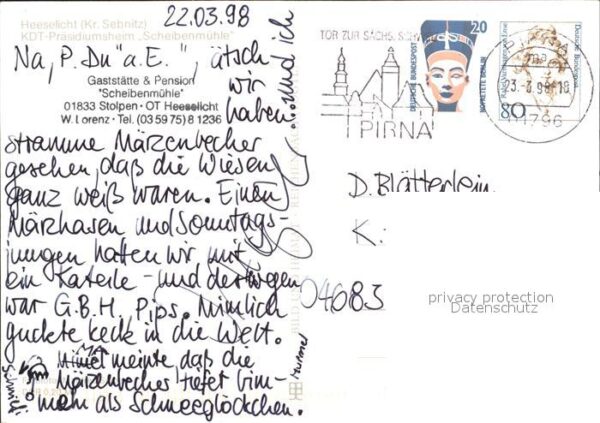 22.03.98
Heeselicht (Kr. Sebnitz)
KDT-Präsidiumsheim „Scheibenmühle"
Na, P. Du "a. E.", ätsch
wir
haben
Gaststätte & Pension
"Scheibenmühle"
01833 Stolpen - OT Heeselicht
W. Lorenz - Tel. (03 59 75) 8 1236
stramme Märzenbecher
gesehen, daß die Wiesen
ganz weiß waren. Einen
Märzhasen und Sonntags-
jungen hatten wir mit,
ein Kateile - und deswegen
war G.B.H. Pips. Nimlich
guckte keck in die Welt.
meinte, daß die
Märzenbecher tiefer bim-
meln als Schneeglöckchen.
und ich
Schmidt
Murmel
TOR ZUR SÄCHS.
PIRNA
20
DEUTSCHE BUNDESPOST
NOFRETETE BERLIN
Deutsche Bundespost
80
23.-3.98-18
01796
D. Blätterlein
K:
04683
privacy protection
Datenschutz